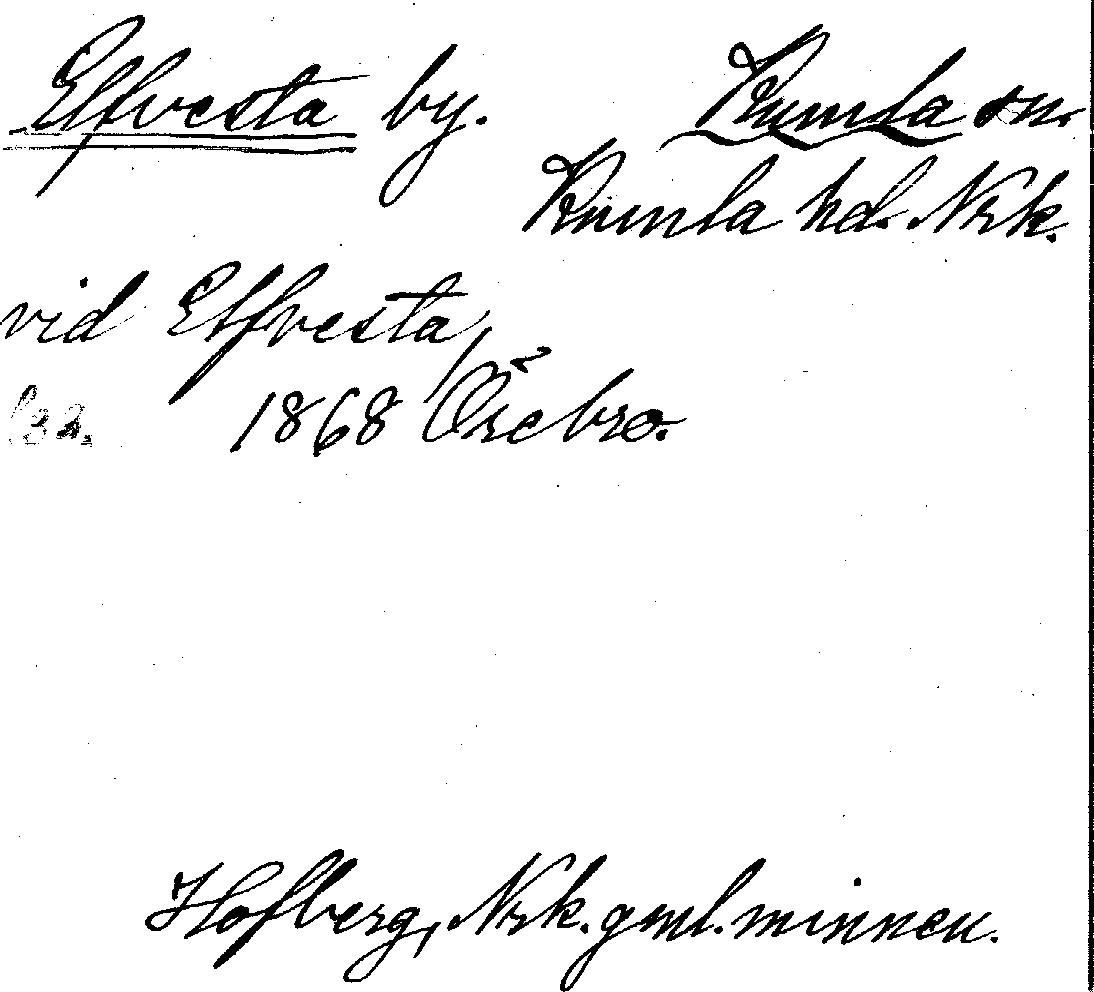 Elfvesta by. Kumla sn.
Kumla hd. Nrk.
vid Elfvesta,
1868 Örebro.
Hofberg, Nrk. gml. minnen.